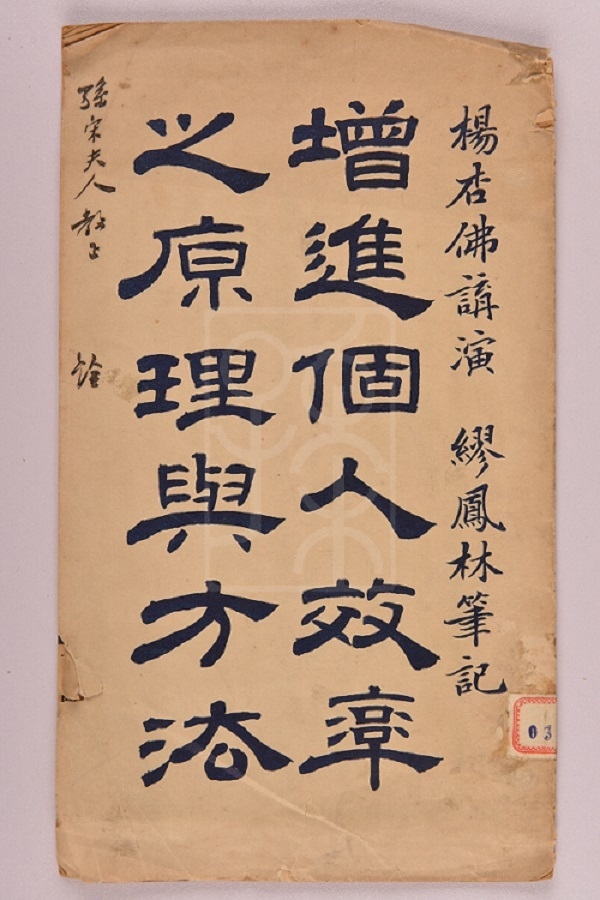 楊杏佛講演 繆鳳林筆記
增進個人效率
之原理與方法
孫宋夫人教正
銓
03